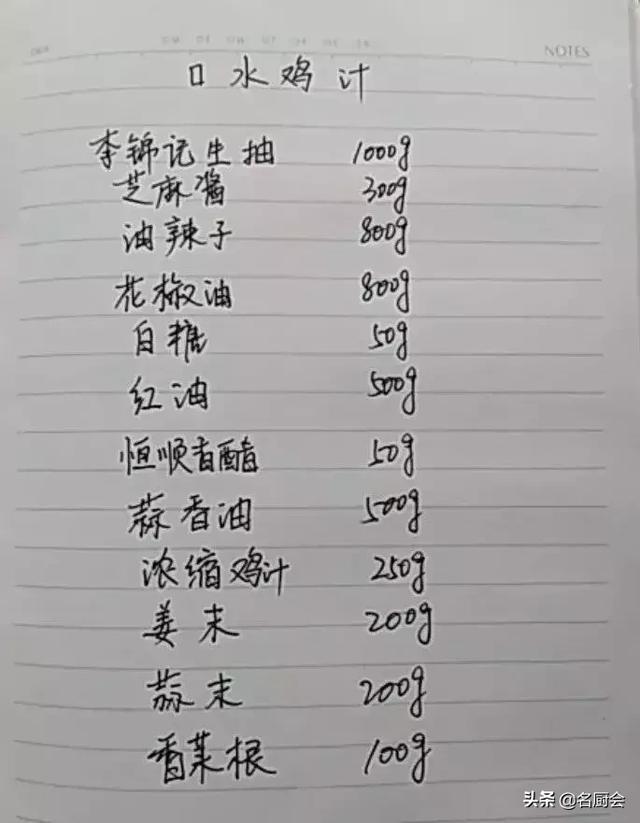 NOTES
口水鸡汁
李锦记生抽 1000g
芝麻酱 300g
油辣子 800g
花椒油 800g
白糖 50g
红油 500g
恒顺香醋 50g
蒜香油 500g
浓缩鸡汁 250g
姜末 200g
蒜末 200g
香菜根 100g
头条 @名厨会